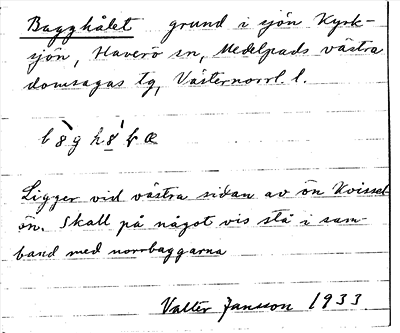 Bagghålet grund i sjön Kyrk-
sjön, Haverö sn, Medelpads västra
domsagas tg, Västernorrl. l.
Ligger vid västra sidan av ön Kvissel
ön. Skall på något vis stå i sam-
band med norrbaggarna
Valter Jansson 1933.